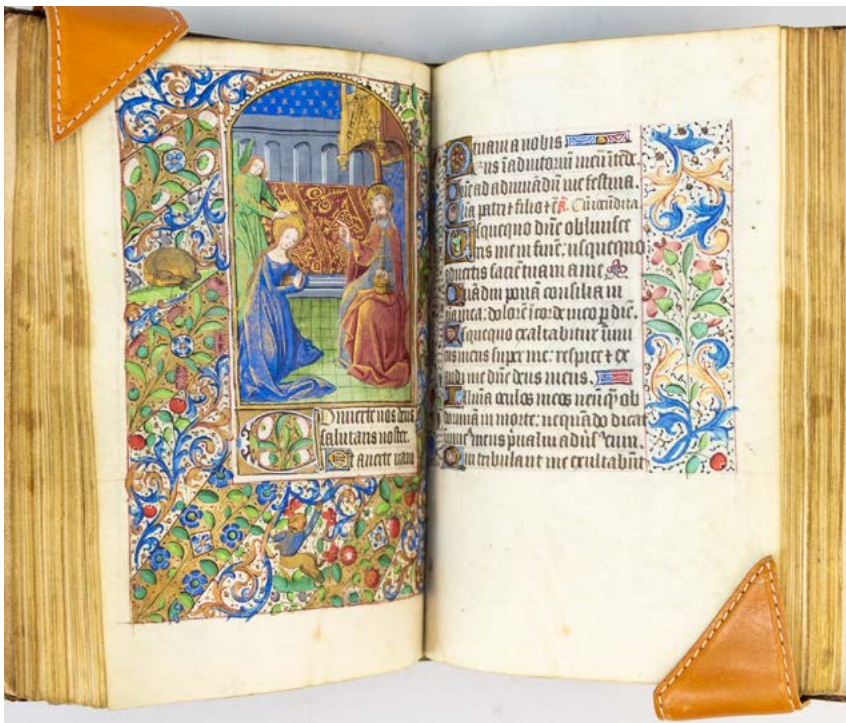 Conuerte nos deus
salutaris noster.
Et auerte iram
tuam a nobis
Deus ī adiutoriū meū ītēde.
Dn̄e ad adiuuādū me festina.
Glīa patri ⁊ filio ⁊ c̄
Usquequo dn̄e obliuisce
ris me in finē: usquequo
aduertis faciē tuam a me
Quādiu ponā consilia in
aīa mea: dolorē ī corde meo p diē.
Usquequo exaltabitur inimi
cus meus super me: respice ⁊ ex
audi me dn̄e deus meus.
Illumīa oculos meos ne unq̄ ob
dormiā in morte: nequādo dicat
inimicꝰ meus p̄ualui adūsꝰ eum.
Qui tribulant me exultabūt